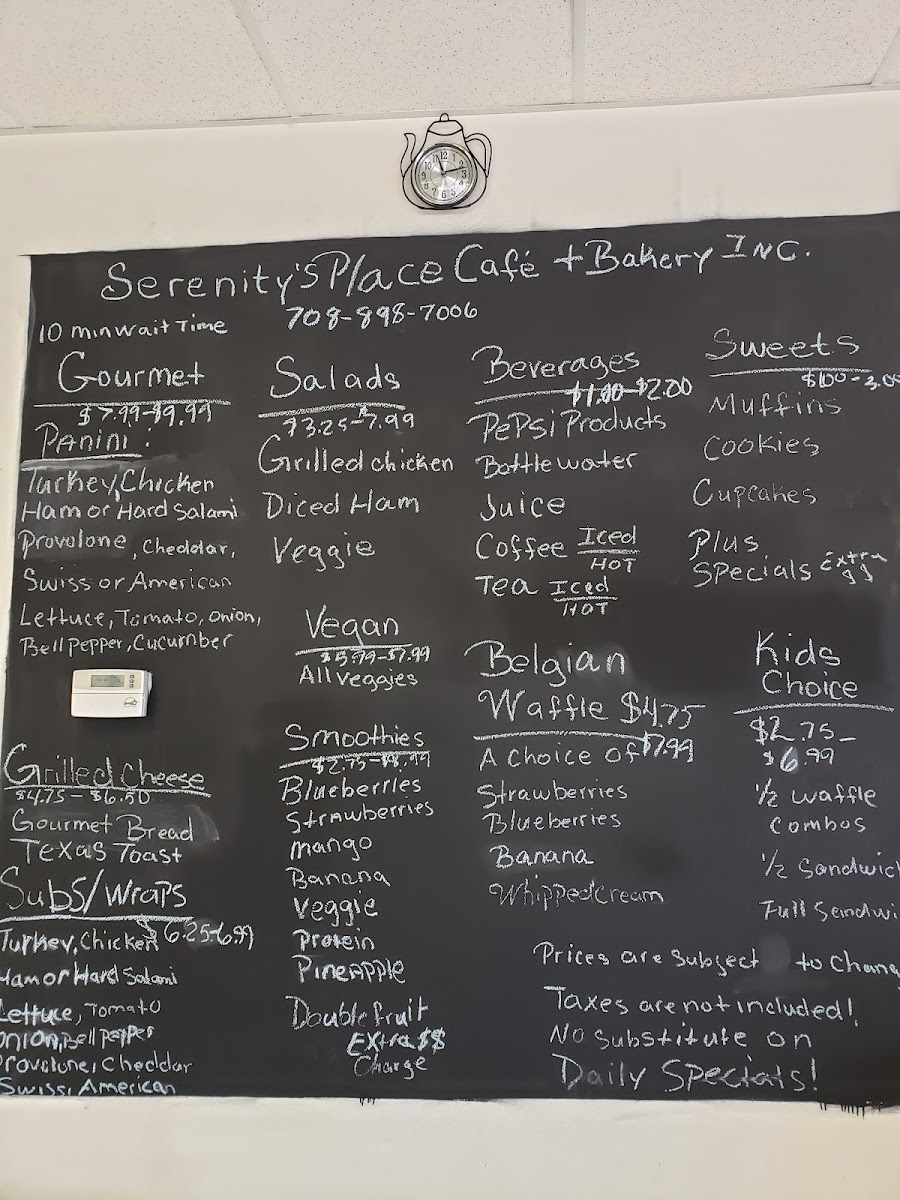 Serenity's Place Café + Bakery INC.
708-898-7006
10 min Wait Time
Gourmet
$7.99-$9.99
Panini:
Turkey, Chicken
Ham or Hard Salami
Provolone, Cheddar,
Swiss or American
Lettuce, Tomato, onion,
Bell pepper, Cucumber
Grilled Cheese
$4.75 - $6.50
Gourmet Bread
Texas Toast
Subs/Wraps
$6.25-6.99
Turkey, Chicken
Ham or Hard Salami
Lettuce, Tomato
onion, Bell pepper
Provolone, Cheddar
Swiss, American
Salads
$3.25-7.99
Grilled chicken
Diced Ham
Veggie
Vegan
$5.99-$7.99
All veggies
Smoothies
Blueberries
Strawberries
mango
Banana
Veggie
Protein
Pineapple
Double fruit
Extra $$
Charge
Beverages
$1.00-$2.00
Pepsi Products
Bottle water
Juice
Coffee Iced
HOT
Tea Iced
HOT
Belgian
Waffle $4.75
$7.99
A choice of
Strawberries
Blueberries
Banana
Whipped cream
Sweets
$1.00-3.00
Muffins
Cookies
Cupcakes
Plus
Specials Extra
Kids
Choice
$2.75-
$6.99
1/2 waffle
combos
1/2 Sandwic
Full Sendwi
Prices are subject to Chang
Taxes are not included!
No substitute on
Daily Specials!